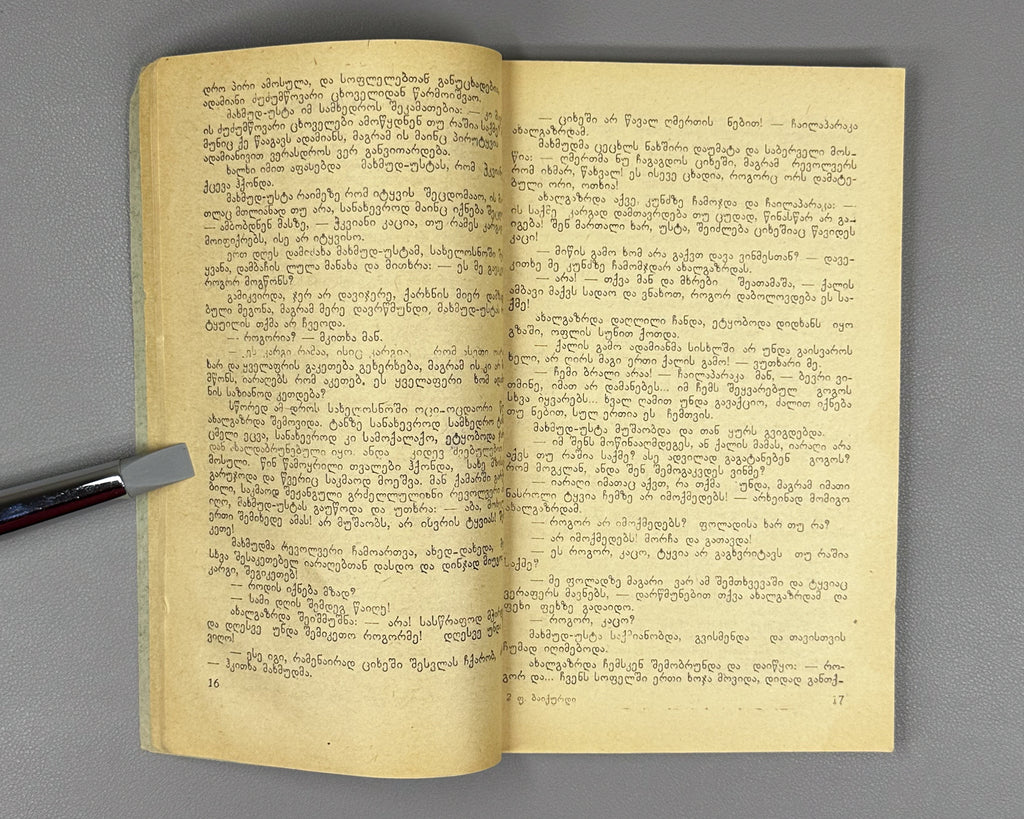 დრო პირი ამოსულა, და სოფლელებთან განუცხადებია,
ადამიანი ძუძუმწოვარი ცხოველიდან წარმოიშვაო.
მახმუდ-უსტა იმ სამხედროს შეკამათებია: — კი მაგრამ
ის ძუძუმწოვარი ცხოველები ამოწყდნენ თუ რაშია საქმე?
მუნიც ქე წააგავს ადამიანს, მაგრამ ის მაინც პირუტყვია
ადამიანივით ვერასდროს ვერ განვითარდება.
ხალხი იმით აფასებდა მახმუდ-უსტას, რომ ჰკვიანი
ქცევა ჰქონდა.
მახმუდ-უსტა რაიმეზე რომ იტყვის შეცდომააო, ის
თლაც მთლიანად თუ არა, სანახევროდ მაინც იქნება
— ამბობდნენ მასზე, — ჰკვიანი კაცია, თუ რამეს კარგად
მოიფიქრებს, ისე არ იტყვისო.
ერთ დღეს დამიძახა მახმუდ-უსტამ, სახელოსნოში
ყვანა, დამბაჩის ლულა მანახა და მითხრა: — ეს მე
როგორ მოგწონს?
გამიკვირდა, ჯერ არ დავიჯერე, ქარხნის მიერ
ბული მეგონა, მაგრამ მერე დავრწმუნდი, მახმუდ-უსტას
ტყუილის თქმა არ ჩვეოდა.
— როგორია? — მკითხა მან.
— ეს კარგი რამაა, ისიც კარგია, რომ ასეთი
ხარ და ყველაფრის გაკეთება გეხერხება, მაგრამ ის კი არ
მწონს, იარაღებს რომ აკეთებ. ეს ყველაფერი ხომ
ნის საზიანოდ კეთდება?
სწორედ ამ-დროს სახელოსნოში ოცი-ოცდაორი
ახალგაზრდა შემოვიდა. ტანზე სანახევროდ სამხედრო
ცმელი ეცვა, სანახევროდ კი სამოქალაქო, ეტყობოდა
დან ახალდაბრუნებული იყო. ანდა კიდევ შვებულებით
მოსული. წინ წამოყრილი თვალები ჰქონდა, სახე
გარუჯოდა და წვერიც საკმაოდ მოეშვა. მან ქამარში
ბილი, საკმაოდ შეჟანგული გრძელლულიანი რევოლვერი
იღო, მახმუდ-უსტას გაუწოდა და უთხრა: — აბა,
ერთი შემიხედე ამას! არ მუშაობს, არ ისვრის ტყვიას!
კეთე!
მახმუდმა რევოლვერი ჩამოართვა, ახედ-დახედა,
სხვა შესაკეთებელ იარაღებთან დასდო და დინჯად მიუგო:
კარგი, შეგიკეთებ!
— როდის იქნება მზად?
— სამი დღის შემდეგ წაიღე!
ახალგაზრდა შეიშმუშნა: — არა! სასწრაფოდ
და დღესვე უნდა შემიკეთო როგორმე! დღესვე უნდა
ვიღო!
— ესე იგი, რამენაირად ციხეში შესვლას ჩქარობ,
— ჰკითხა მახმუდმა.
16
— ციხეში არ წავალ ღმერთის ნებით! — ჩაილაპარაკა
ახალგაზრდამ.
მახმუდმა ცეცხლს ნახშირი დაუმატა და საბერველი მოს-
წია: — ღმერთმა ნუ ჩაგაგდოს ციხეში, მაგრამ რევოლვერს
რომ იხმარ, წახვალ! ეს ისევე ცხადია, როგორც ორს დამატე-
ბული ორი, ოთხია!
ახალგაზრდა აქვე კუნძზე ჩამოჯდა და ჩაილაპარაკა: —
ის საქმე კარგად დამთავრდება თუ ცუდად, წინასწარ არ გა-
იგება! შენ მართალი ხარ, უსტა, შეიძლება ციხეშიაც წავიდეს
კაცი!
— მიწის გამო ხომ არა გაქვთ დავა ვინმესთან? — დავე-
კითხე მე კუნძზე ჩამომჯდარ ახალგაზრდას.
— არა! — თქვა მან და მხრები შეათამაშა, — ქალის
ამბავი მაქვს სადაო და ვნახოთ, როგორ დაბოლოვდება ეს სა-
ქმე!
ახალგაზრდა დაღლილი ჩანდა, ეტყობოდა დიდხანს იყო
გზაში, ოფლის სუნით ქოთდა.
— ქალის გამო ადამიანმა სისხლში არ უნდა გაისვაროს
ხელი, არ ღირს მაგი ერთი ქალის გამო! — ვუთხარი მე.
— ჩემი ბრალი არაა! — ჩაილაპარაკა მან, — ბევრი ვი-
თმინე, იმათ არ დამანებეს... იმ ჩემს შეყვარებულ გოგოს
სხვა იყვარებს... ხვალ ღამით უნდა გავაქციო, ძალით იქნება
თუ ნებით, სულ ერთია ეს ჩემთვის.
მახმუდ-უსტა მუშაობდა და თან ყურს გვიგდებდა.
— იმ შენს მოწინააღმდეგეს, ან ქალის მამას, იარაღი არა
აქვს თუ რაშია საქმე? ასე ადვილად გაგატანებენ გოგოს?
რომ მოგკლან, ანდა შენ შემოგაკვდეს ვინმე?
— იარაღი იმათაც აქვთ, რა თქმა უნდა, მაგრამ იმათი
ნასროლი ტყვია ჩემზე არ იმოქმედებს! — არხეინად მომიგო
ახალგაზრდამ.
— როგორ არ იმოქმედებს? ფოლადისა ხარ თუ რა?
— არ იმოქმედებს! მორჩა და გათავდა!
— ეს როგორ, კაცო, ტყვია არ გაგხვრიტავს თუ რაშია
საქმე?
— მე ფოლადზე მაგარი ვარ ამ შემთხვევაში და ტყვიაც
ვერაფერს მავნებს, — დარწმუნებით თქვა ახალგაზრდამ და
ფეხი ფეხზე გადაიდო.
— როგორ, კაცო?
მახმუდ-უსტა საქმიანობდა, გვისმენდა და თავისთვის
ჩუმად იღიმებოდა.
ახალგაზრდა ჩემსკენ შემობრუნდა და დაიწყო: — რო-
გორ და... ჩვენს სოფელში ერთი ხოჯა მოვიდა, დიდად განთქ-
2 ფ. ბაიქურდი
17